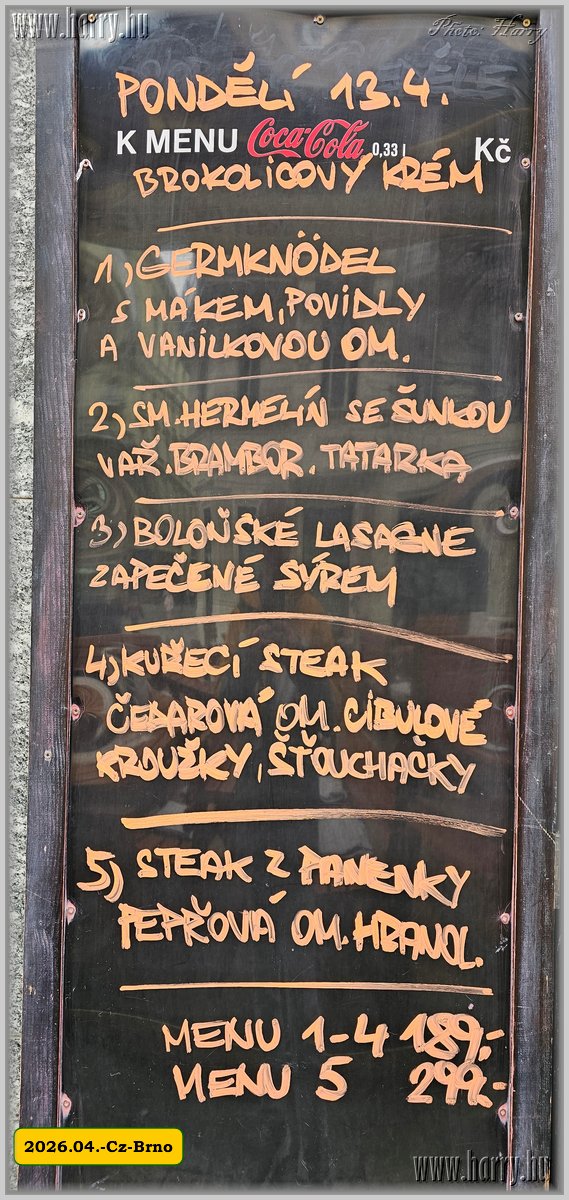 www.horry.hu
Photo: Harry
PONDĚLÍ 13.4.
K MENU Coca-Cola 0,33 l Kč
BROKOLICOVÝ KRÉM
1, GERMKNÖDEL
S MÁKEM, POVIDLY
A VANILKOVOU OM.
2, SM. HERMELÍN SE ŠUNKOU
VAŘ. BRAMBOR. TATARKA
3, BOLOŇSKÉ LASAGNE
ZAPEČENÉ SÝREM
4, KUŘECÍ STEAK
ČEDAROVÁ OM. CIBULOVÉ
KROUŽKY, ŠŤOUCHAČKY
5, STEAK Z PANENKY
PEPŘOVÁ OM. HRANOL.
MENU 1-4 189,-
MENU 5 299.-
2026.04.-Cz-Brno
www.horry.hu